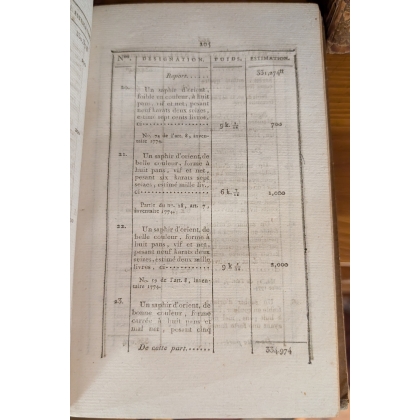 205
Nos. DÉSIGNATION. POIDS. ESTIMATION.
Report...... 331,974
20.
Un saphir d'orient,
faible en couleur, à huit
pans, vif et net, pesant
neuf karats deux seizes,
estimé sept cents livres,
ci............ 9 k. 2/16 700
No. 74 de l'art. 8, inven-
taire 1774.
21.
Un saphir d'orient, de
belle couleur, forme à
huit pans, vif et net,
pesant six karats sept
seizes, estimé mille liv.,
ci............ 6 k. 7/16 1,000
Partie du no. 18, art. 7,
inventaire 1774.
22.
Un saphir d'orient, de
belle couleur, forme à
huit pans, vif et net,
pesant neuf karats deux
seizes, estimé deux mille
livres, ci............ 9 k. 2/16 2,000
No. 19 de l'art. 8, inven-
taire 1774.
23.
Un saphir d'orient, de
bonne couleur, forme
carrée à huit pans et
mal net, pesant cinq
De cette part...... 334,974